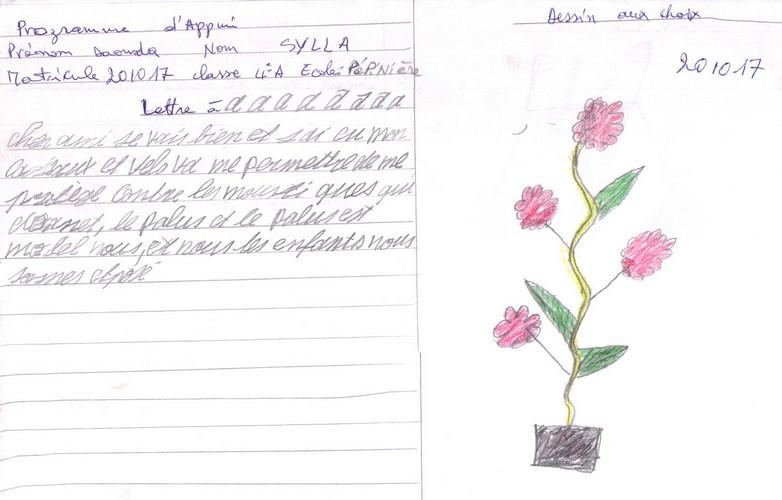 Programme d'Appui
Prénom Daouda Nom SYLLA
Matricule 201017 classe 4e A Ecole PéPiNière
Lettre à a a a a a a a a
cher ami je vais bien et j'ai eu mon
et velo va me permettre de me
contre les moustiques qui
le palus et le palus est
nous, et nous les enfants nous
sommes
Dessin aux choix
201017